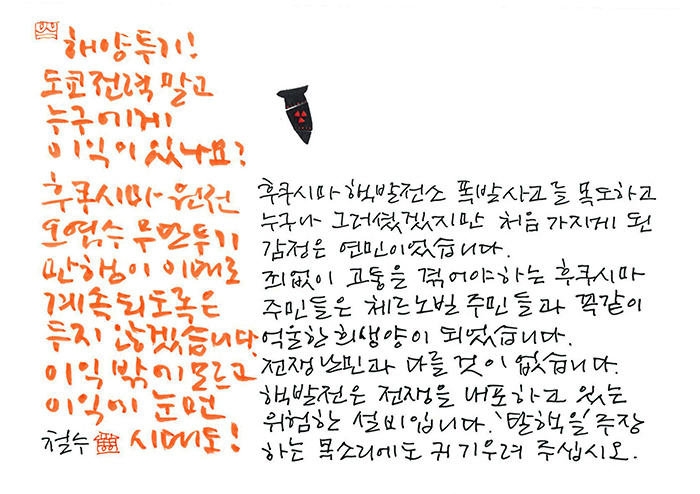 해양투기!
도쿄전력 말고
누구에게
이익이 있나요?
후쿠시마 원전
오염수 무단투기
만행이 이대로
계속되도록은
두지 않겠습니다.
이익 밖에 모르고
이익에 눈먼
시대도!
철수
후쿠시마 핵발전소 폭발사고를 목도하고
누구나 그러셨겠지만 처음 가지게 된
감정은 연민이었습니다.
죄없이 고통을 겪어야하는 후쿠시마
주민들은 체르노빌 주민들과 똑같이
억울한 희생양이 되었습니다.
전쟁난민과 다를 것이 없습니다.
핵발전은 전쟁을 내포하고 있는
위험한 설비입니다. '탈핵을' 주장
하는 목소리에도 귀 기우려 주십시오.